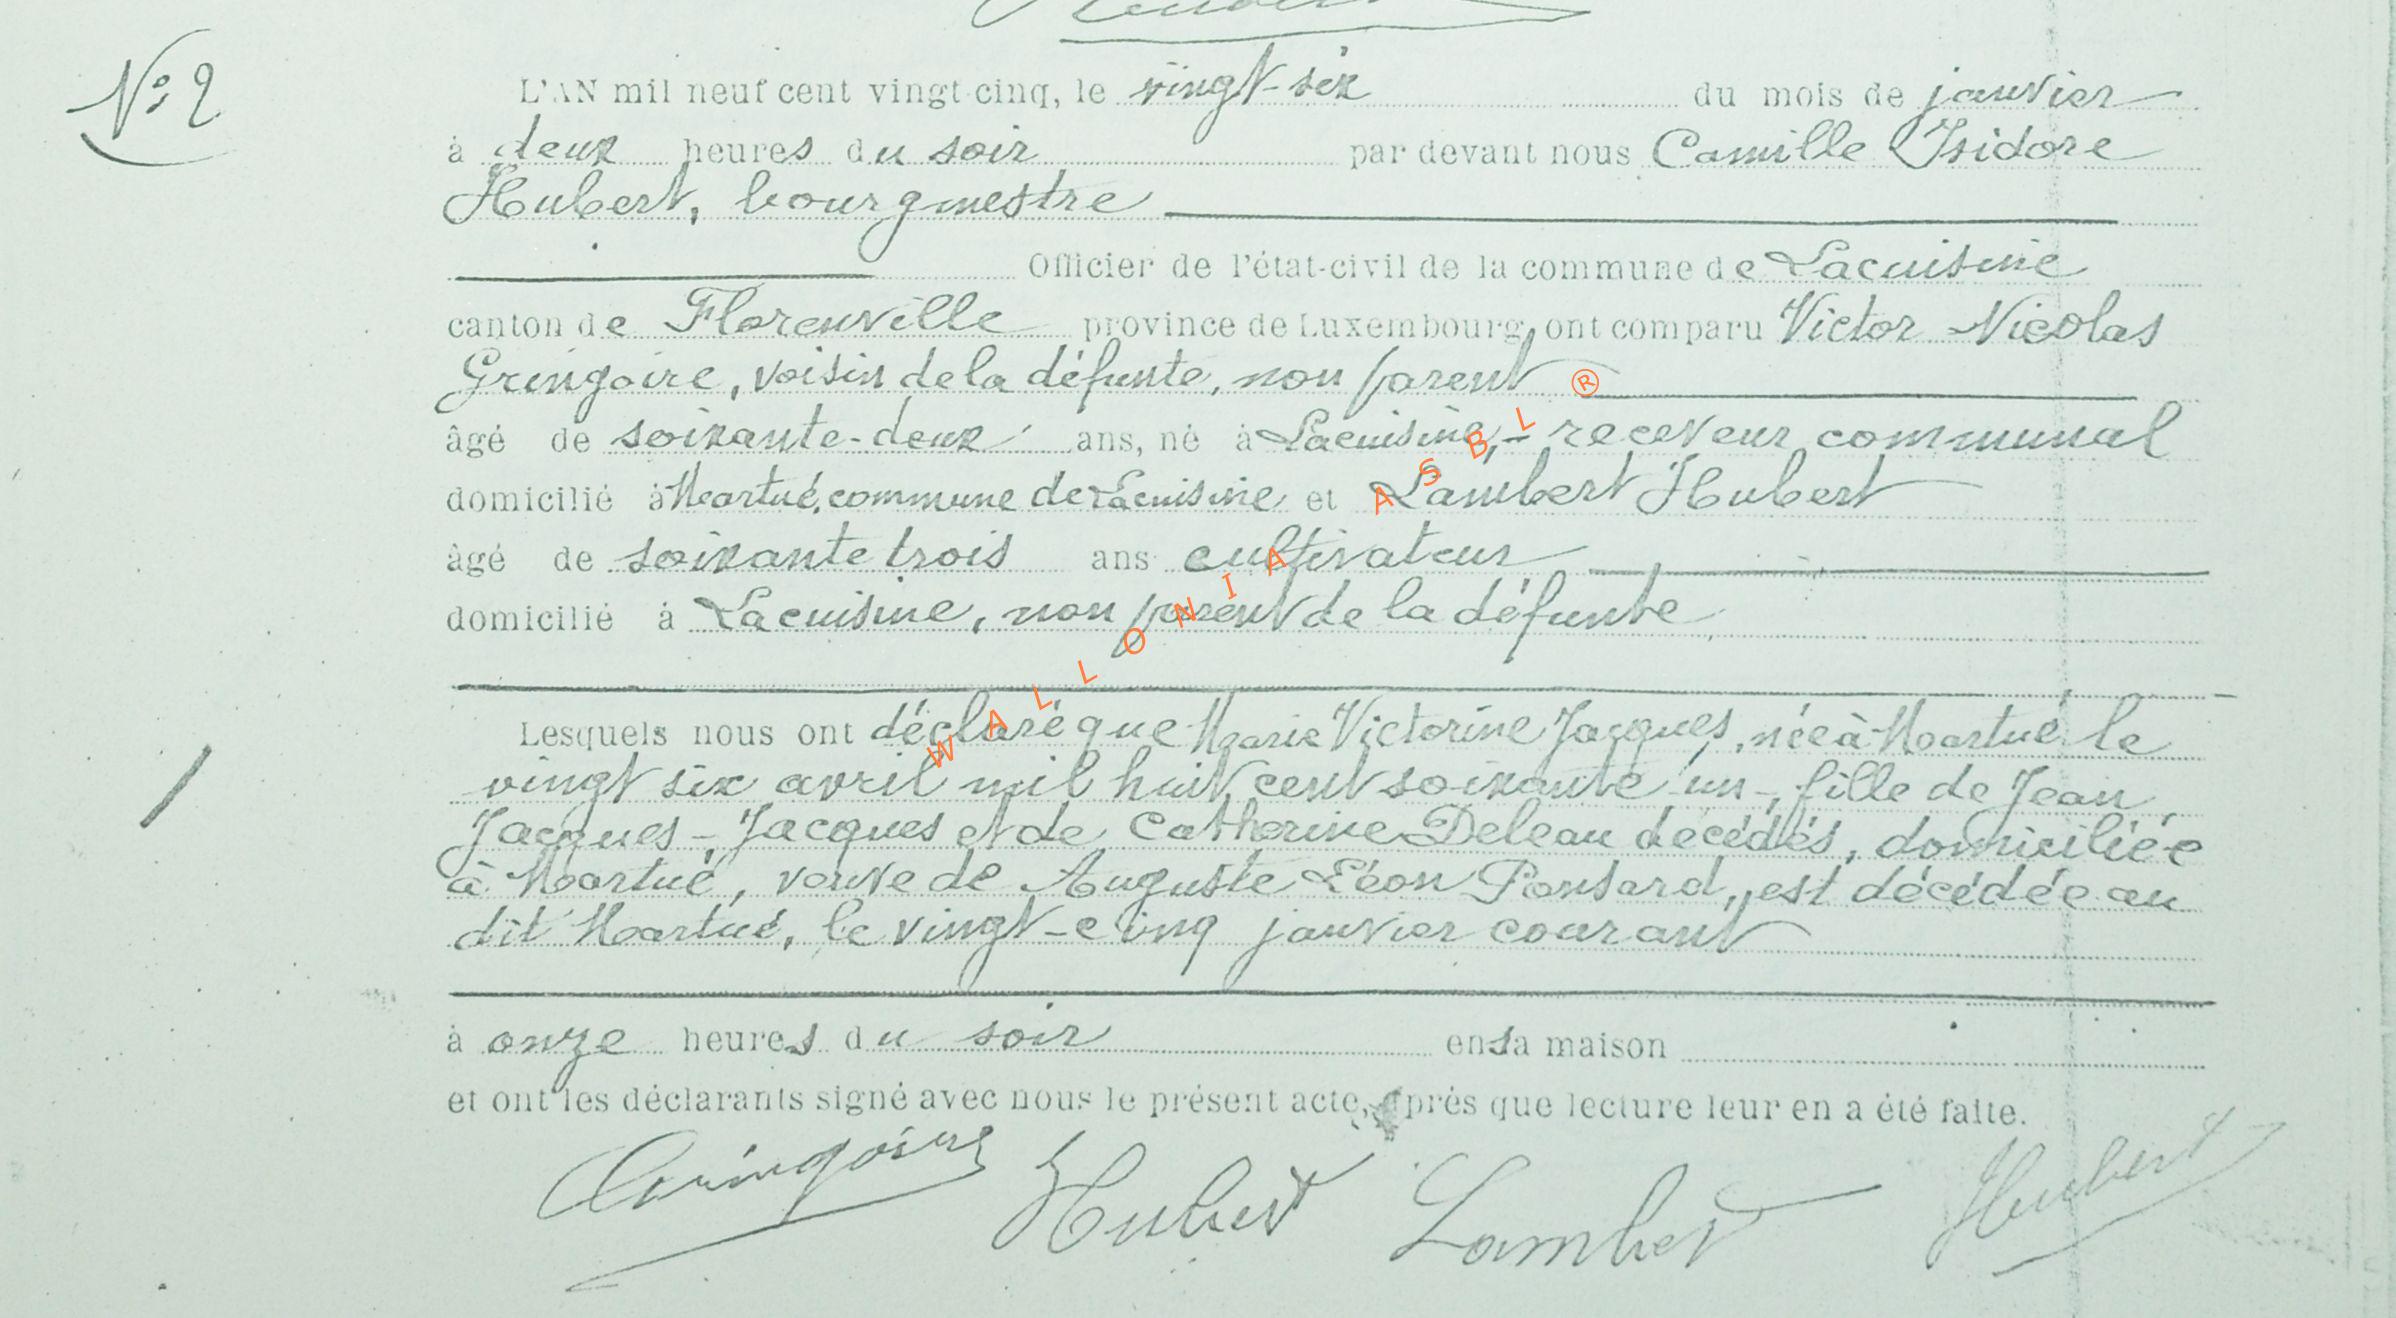 N° 2
L'AN mil neuf cent vingt-cinq, le vingt-six du mois de janvier
à deux heures du soir par devant nous Camille Isidore
Hubert, bourgmestre
Officier de l'état-civil de la commune de Lacuisine
canton de Florenville province de Luxembourg, ont comparu Victor Nicolas
Gringoire, voisin de la défunte, non parent
âgé de soixante-deux ans, né à Lacuisine, receveur communal
domicilié à Martué, commune de Lacuisine et Lambert Hubert
âgé de soixante trois ans cultivateur
domicilié à Lacuisine, non parent de la défunte
Lesquels nous ont déclaré que Marie Victorine Jacques, née à Martué le
vingt six avril mil huit cent soixante un, fille de Jean
Jacques-Jacques et de Catherine Deleau décédés, domiciliée
à Martué, veuve de Auguste Léon Ponsard, est décédée au
dit Martué, le vingt-cinq janvier courant
à onze heures du soir en sa maison
et ont les déclarants signé avec nous le présent acte, après que lecture leur en a été faite.
Gringoire Hubert Lambert Hubert
WALLONIA ASBL ®